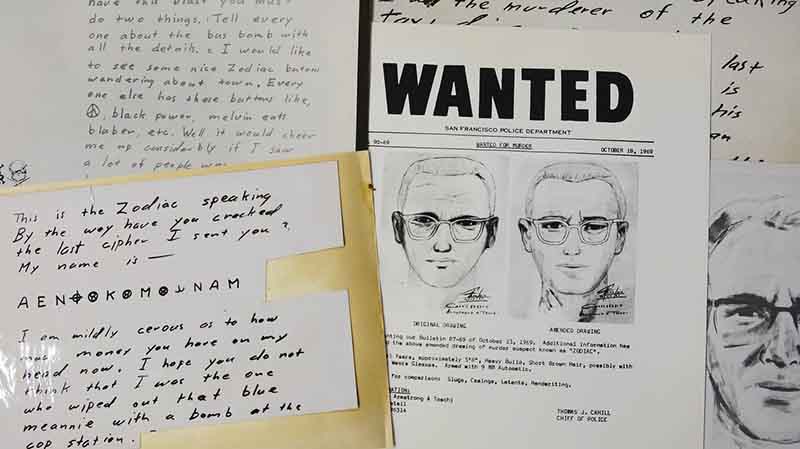 have this blast you must
do two things. Tell every
one about the bus bomb with
all the details. I would like
to see some nice Zodiac butons
wandering about town. Every
one else has these buttons like,
☮, black power, melvin eats
bluber, etc. Well it would cheer
me up considerbly if I saw
a lot of people
This is the Zodiac speaking
By the way have you cracked
the last cipher I sent you?
My name is —
AEN⌖⊗K⊗M⊗⅃NAM
I am mildly cerous as to how
much money you have on my
head now. I hope you do not
think that I was the one
who wiped out that blue
meannie with a bomb at the
cop station.
the murderer of the
last
is
his
WANTED
SAN FRANCISCO POLICE DEPARTMENT
90-69 WANTED FOR MURDER OCTOBER 18, 1969
ORIGINAL DRAWING AMENDED DRAWING
our Bulletin 87-69 of October 13, 1969. Additional information has
the above amended drawing of murder suspect known as "ZODIAC".
Years, approximately 5'8", Heavy Build, Short Brown Hair, possibly with
Wears Glasses. Armed with 9 MM Automatic.
For comparison: Slugs, Casings, Latents, Handwriting.
Armstrong & Toschi
THOMAS J. CAHILL
CHIEF OF POLICE